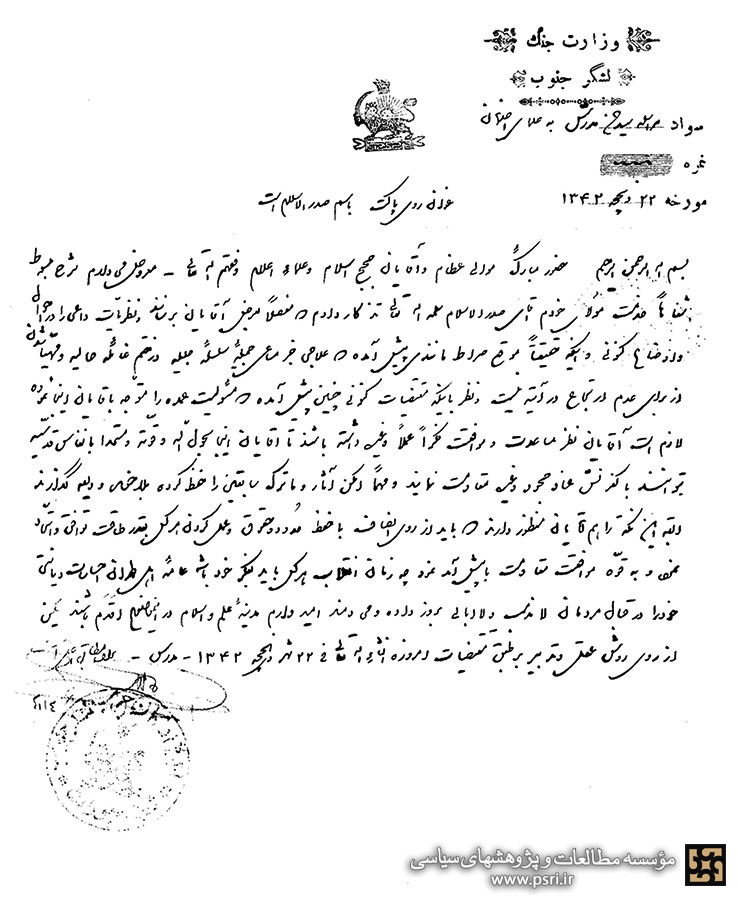 وزارت جنگ
لشگر جنوب
سواد مراسله سید حسن مدرس به علمای اصفهان
نمره
مورخه ۲۲ ذیحجه ۱۳۴۲
عنوان روی پاکت باسم صدرالاسلام است
بسم اله الرحمن الرحیم حضور مبارک موالی عظام و آقایان حجج اسلام و علماء اعلام وفقهم اله تعالی - معروض میدارم شرح مبسوط
خدمت مولای خودم آقای صدرالاسلام سلمه اله تعالی تذکار دادم که مفصلاً بعرض آقایان برساند و نظریات داعی را در
و اوضاع کنونی و اینکه حقیقتاً موقع صراط مانندی پیش آمده که علاجی جز مساعی جمیله سلسله جلیله در ختم غائله حالیه و
از برای عدم ارتجاع در آتیه نیست و نظر باینکه مقتضیات کنونی چنین پیش آمده که مسئولیت عمده را متوجه باقایان اینجا نموده
لازم است آقایان نظر مساعدت و موافقت فکراً عملاً وغیره داشته باشند تا آقایان اینجا بحول اله و قوته و مستمدا بانفاس قدسیه
بتوانند با کفر نفس عناد جحود وغیره مقاومت نمایند و مهما امکن آثار و ماترک سابقین را حفظ کرده بلاحقین ودیعه گذارند
البته این نکته را هم آقایان منظور دارند که باید از روی انصاف با حفظ حدود و حقوق و عمل کردن هر کس بقدر طاقت توافق و اتحاد
نموده و به قوه موافقت مقاومت با پیش آمد نمود چه زمان انقلاب هر کس باید بفکر خود باشد عامه اهل طهران احساسات دیانتی
خود را در مقابل مردمان لامذهب و لاابالی بروز داده و می دهند امید وارم مدینه علم و اسلام در این موضوع اقدم باشند لیکن
از روی روش عقل و تدبیر بر طبق مقتضیات امروزه انشاء اله تعالی فی ۲۲ شهر ذیحجه ۱۳۴۲ - مدرس -
مؤسسه مطالعات و پژوهشهای سیاسی
www.psri.ir